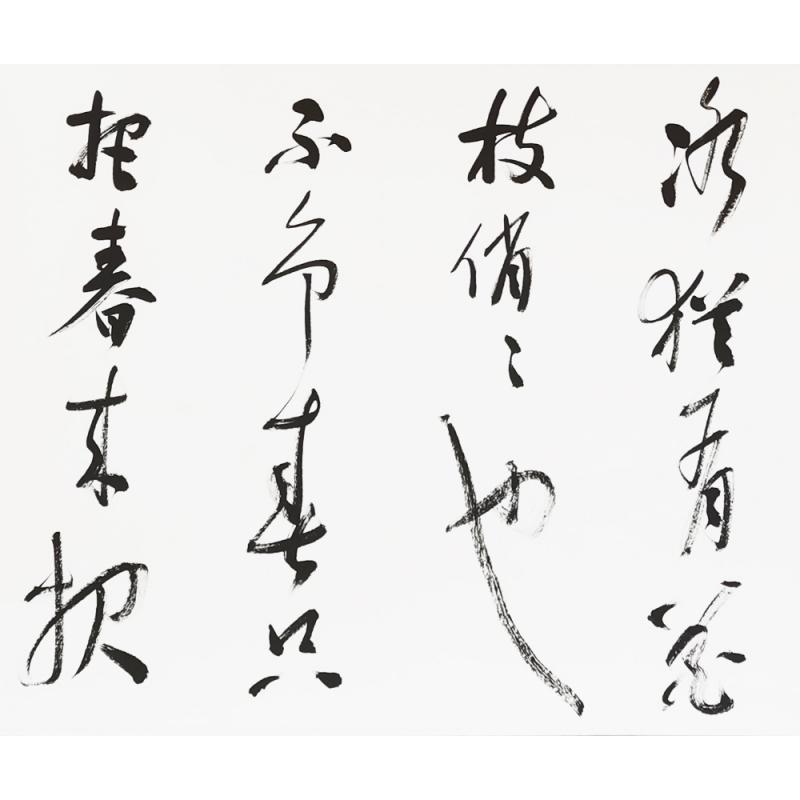 冰犹有花
枝俏〻也
不争春只
把春来报